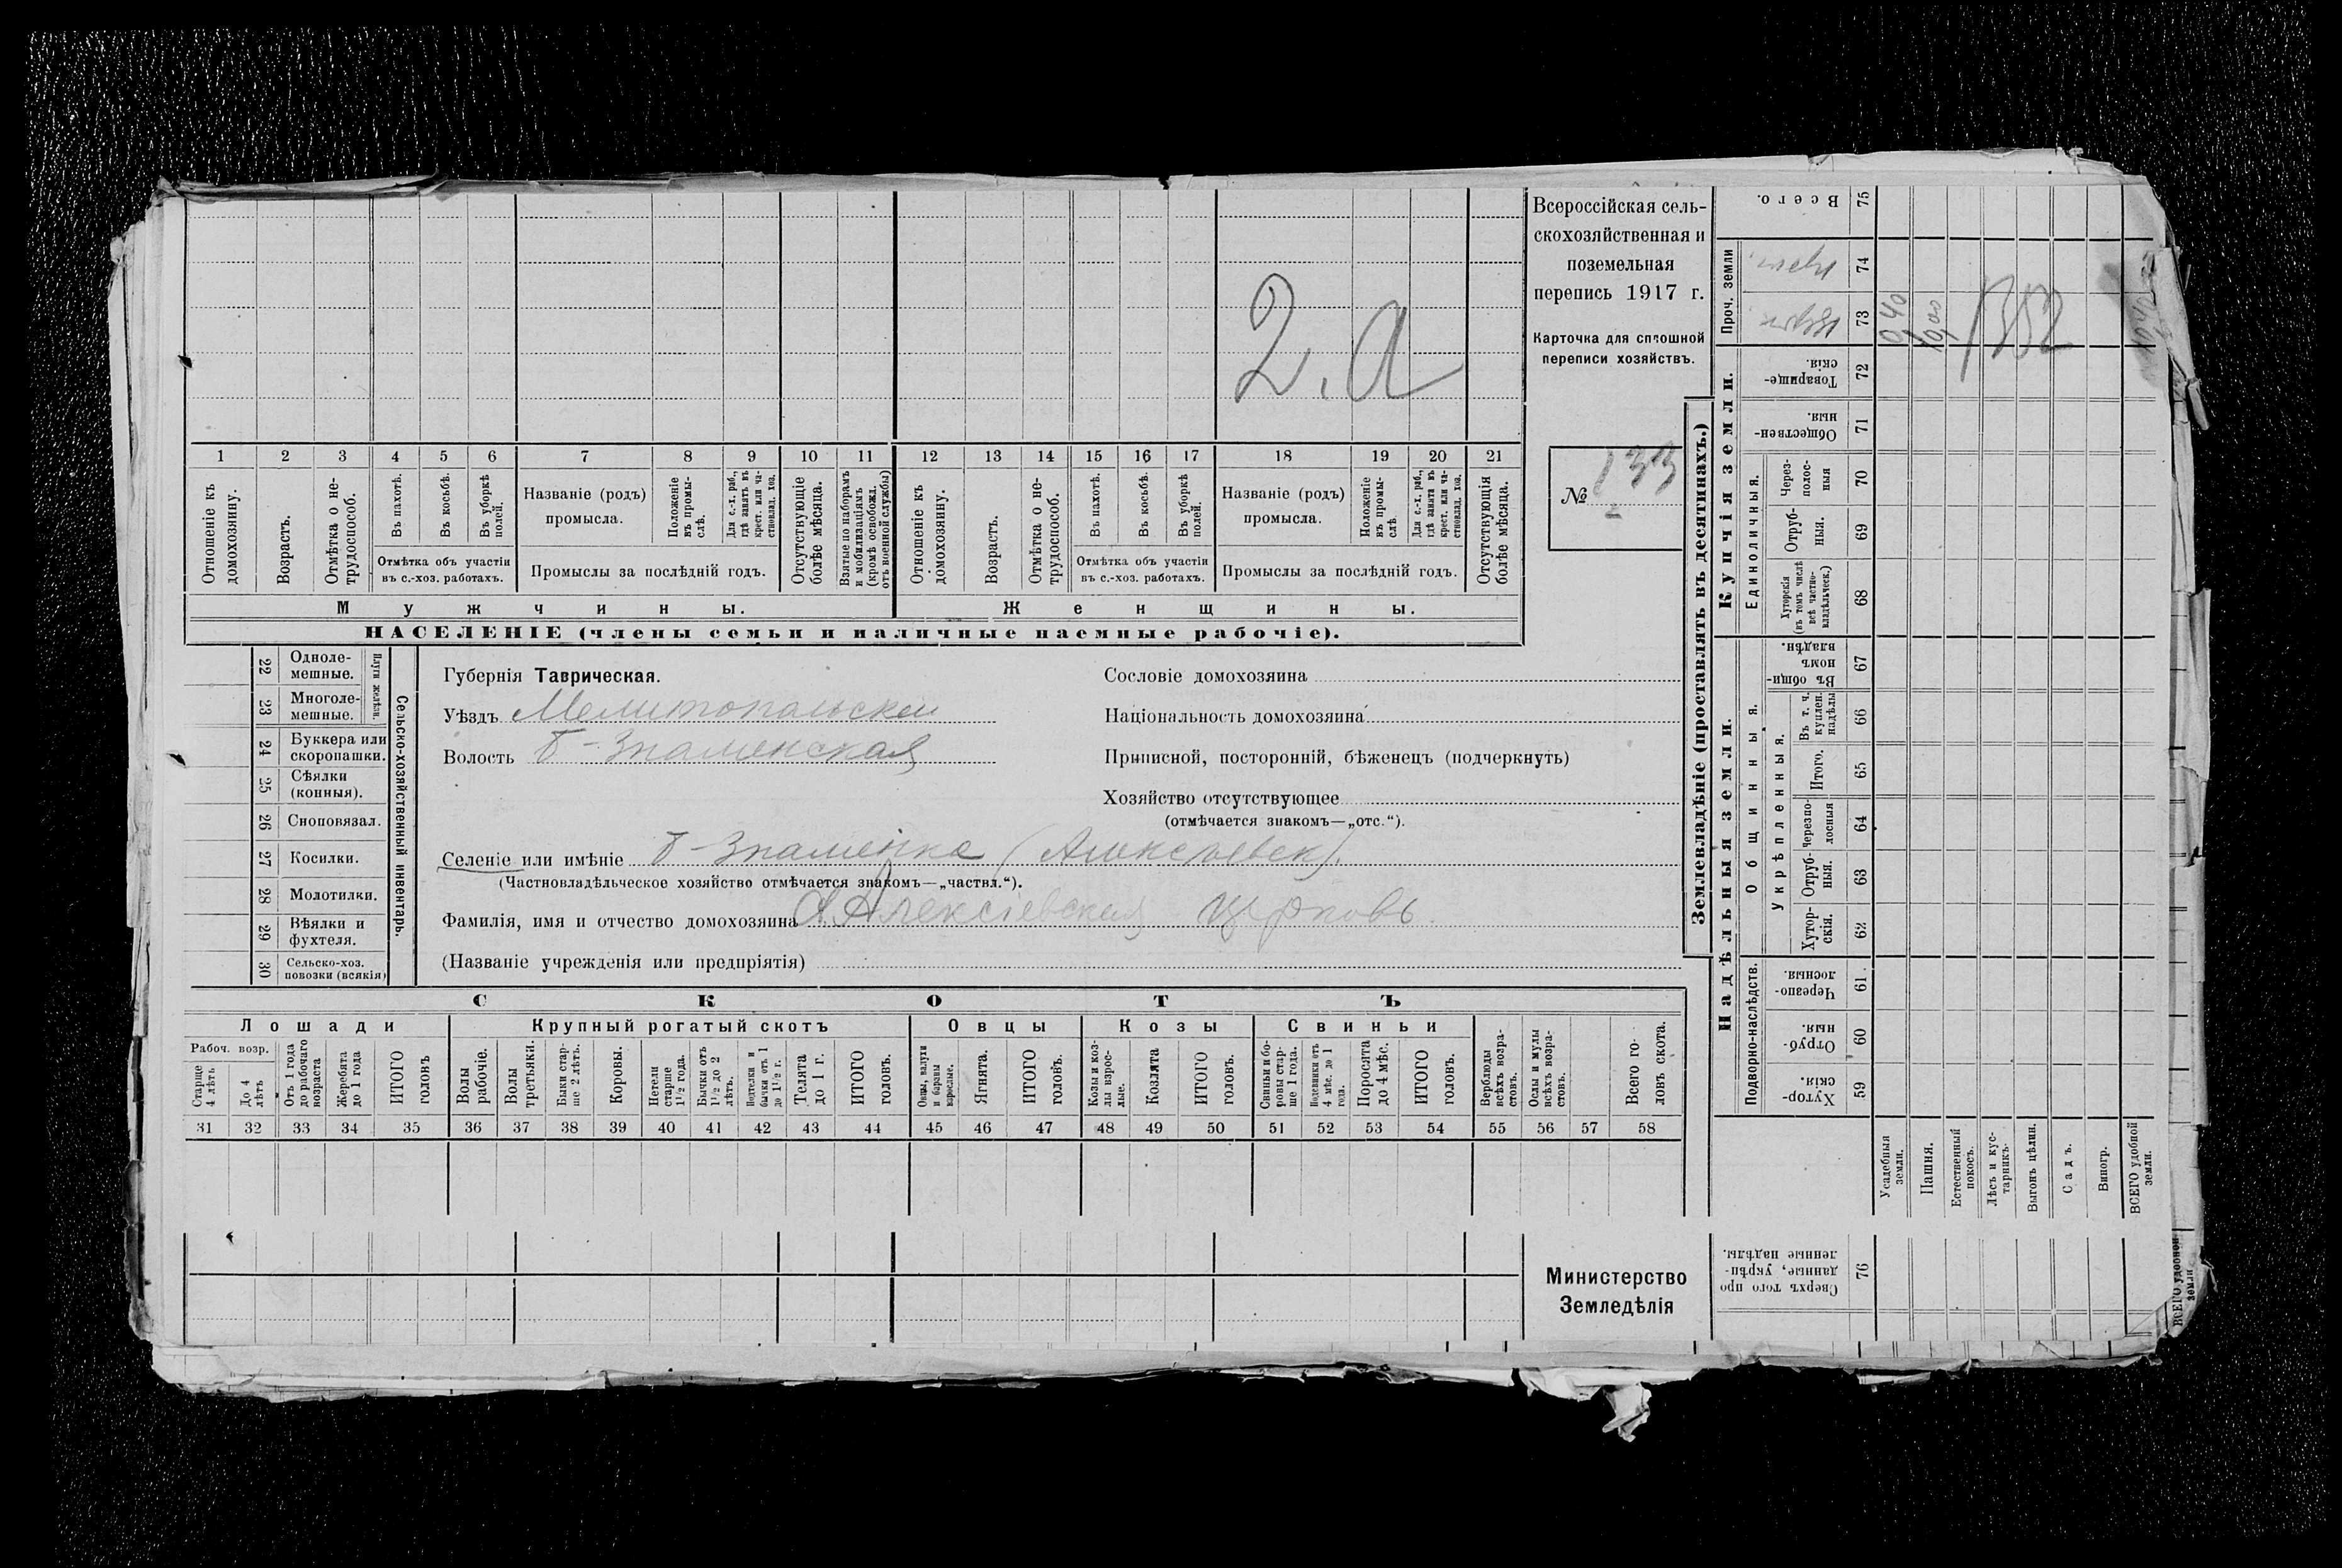 Всероссійская сель-
скохозяйственная и
поземельная
перепись 1917 г.
Карточка для сплошной
переписи хозяйствъ.
№ 133
2. а
1 2 3 4 5 6 7 8 9 10 11 12 13 14 15 16 17 18 19 20 21
Отношеніе къ домохозяину.
Возрастъ.
Отмѣтка о не-трудоспособ.
Въ пахотѣ.
Въ косьбѣ.
Въ уборкѣ полей.
Отмѣтка объ участіи
въ с.-хоз. работахъ.
Названіе (родъ)
промысла.
Положеніе въ промы-слѣ.
Для с.-х. раб., гдѣ занятъ въ крест. или ча-стновлад. хоз.
Промыслы за послѣдній годъ.
Отсутствующіе болѣе мѣсяца.
Взятые по наборамъ и мобилизаціямъ (кромѣ освобожд. отъ военной службы)
Отношеніе къ домохозяину.
Возрастъ.
Отмѣтка о не-трудоспособ.
Въ пахотѣ.
Въ косьбѣ.
Въ уборкѣ полей.
Отмѣтка объ участіи
въ с.-хоз. работахъ.
Названіе (родъ)
промысла.
Положеніе въ промы-слѣ
Для с.-х. раб., гдѣ занята въ крест. или ча-стновлад. хоз.
Промыслы за послѣдній годъ.
Отсутствующія болѣе мѣсяца.
Мужчины. Женщины.
НАСЕЛЕНІЕ (члены семьи и наличные наемные рабочіе).
Сельско-хозяйственный инвентарь.
Плуги желѣзн.
22 Одноле-мешные.
23 Многоле-мешные.
24 Буккера или скоропашки.
25 Сѣялки (конныя).
26 Сноповязал.
27 Косилки.
28 Молотилки.
29 Вѣялки и фухтеля.
30 Сельско-хоз. повозки (всякія)
Губернія Таврическая.
Уѣздъ Мелитопольскій
Волость Б-Знаменская
Сословіе домохозяина
Національность домохозяина
Приписной, посторонній, бѣженецъ (подчеркнуть)
Хозяйство отсутствующее
(отмѣчается знакомъ—„отс.“).
Селеніе или имѣніе Б-Знаменка (Алексѣевск).
(Частновладѣльческое хозяйство отмѣчается знакомъ—„частвл.“).
Фамилія, имя и отчество домохозяина Алексіевская церковь.
(Названіе учрежденія или предпріятія)
СКОТЪ
Лошади Крупный рогатый скотъ Овцы Козы Свиньи
Рабоч. возр.
Старше 4 лѣтъ
До 4 лѣтъ
Отъ 1 года до рабочаго возраста
Жеребята до 1 года
ИТОГО головъ
Волы рабочіе.
Волы третьяки.
Быки стар-ше 2 лѣтъ.
Коровы.
Нетели старше 1½ года.
Бычки отъ 1½ до 2 лѣтъ.
Подтелки и бычки отъ 1 до 1½ г.
Телята до 1 г.
ИТОГО головъ.
Овцы, валухи и бараны взрослые.
Ягнята.
ИТОГО головъ.
Козы и коз-лы взрос-лые.
Козлята
ИТОГО головъ.
Свиньи и бо-ровы стар-ше 1 года.
Подсвинки отъ 4 мѣс. до 1 года.
Поросята до 4 мѣс.
ИТОГО головъ.
Верблюды всѣхъ возра-стовъ.
Ослы и мулы всѣхъ возра-стовъ.
Всего го-ловъ скота.
31 32 33 34 35 36 37 38 39 40 41 42 43 44 45 46 47 48 49 50 51 52 53 54 55 56 57 58
Министерство
Земледѣлія
Землевладѣніе (проставлять въ десятинахъ.)
Надѣльныя земли. Купчія земли. Проч. земли
Подворно-наслѣдств.
Общинныя.
Укрѣпленныя.
Единоличныя.
Всего. 75
74
73
Товарище-скія. 72
Обществен-ныя. 71
Через-полос-ныя 70
Отруб-ныя. 69
Хуторскія (въ томъ числѣ всѣ частно-владѣльческ.) 68
Въ общин-номъ владѣн. 67
Въ т. ч. куплен. надѣлы 66
Итого. 65
Черезпо-лосныя 64
Отруб-ныя. 63
Хутор-скія. 62
Черезпо-лосныя. 61.
Отруб-ныя. 60
Хутор-скія. 59
Усадебныя земли.
Пашня.
Естественный покосъ.
Лѣсъ и кус-тарникъ.
Выгонъ цѣлин.
Садъ.
Виногр.
ВСЕГО удобной земли.
0,40
10,00
1352
Сверхъ того про-данные, укрѣп-ленные надѣлы. 76
ВСЕГО удобной земли